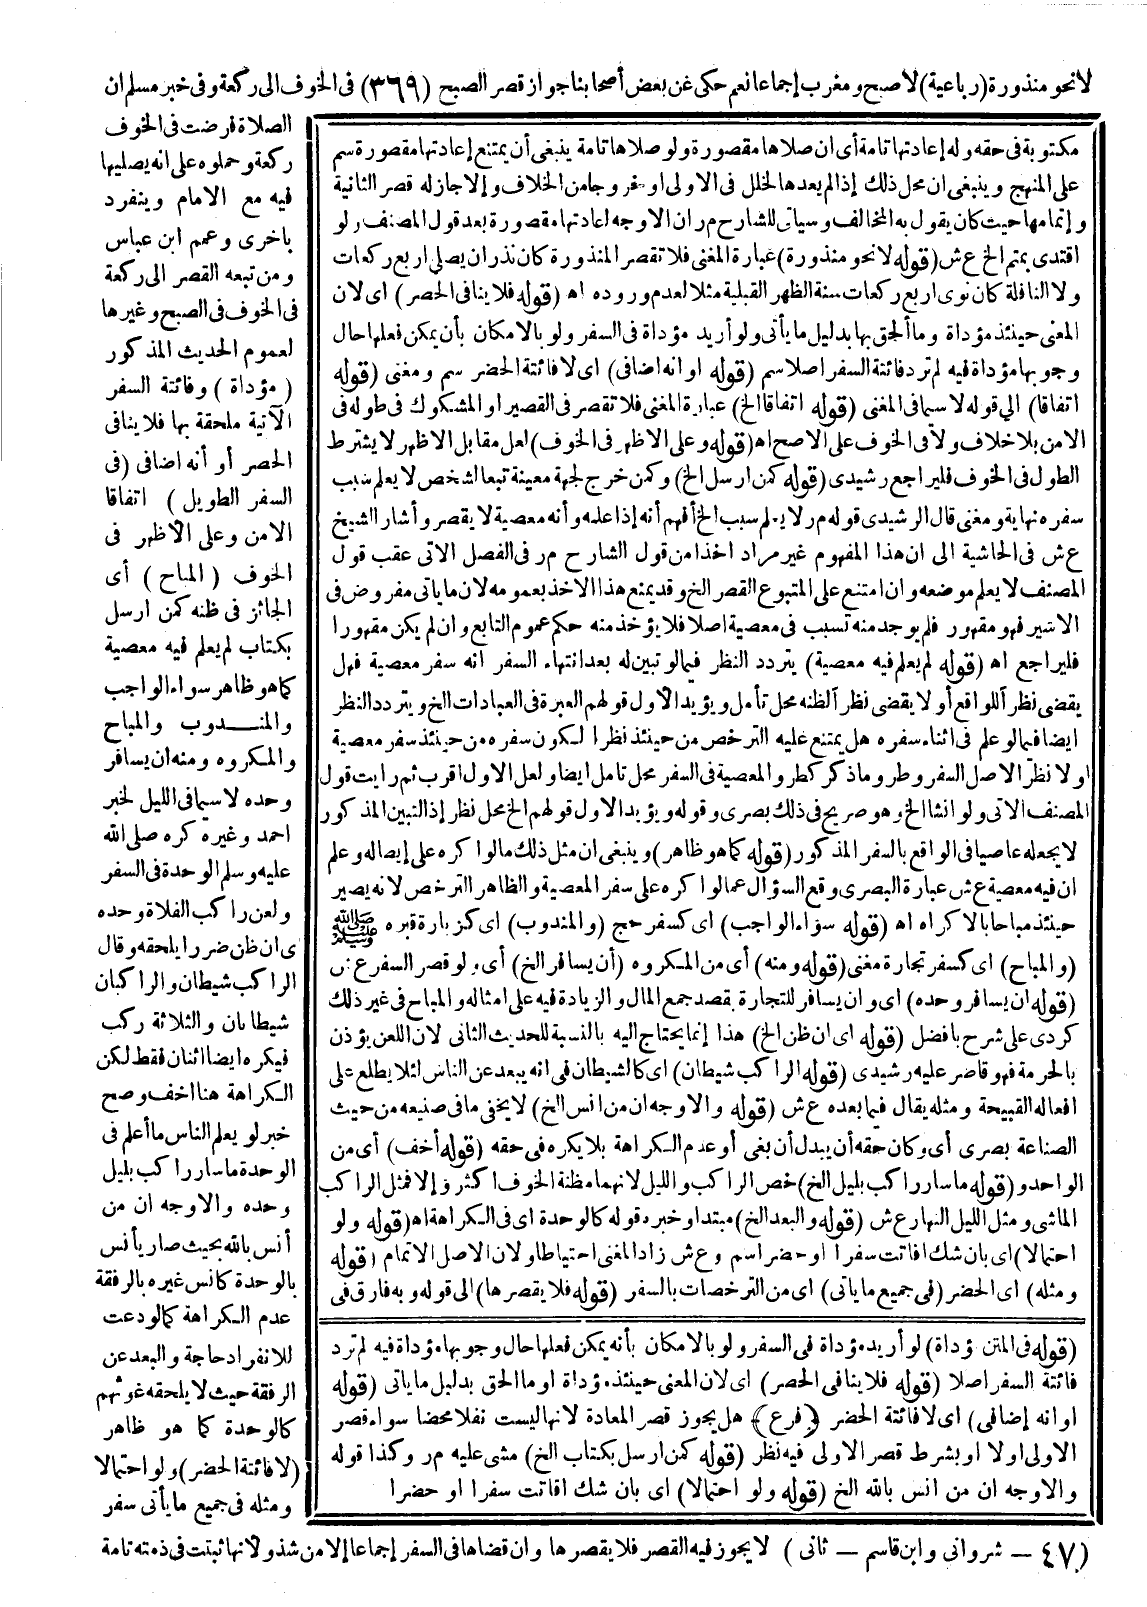 لا نحو منذورة (رباعية) لا صبح ومغرب إجماعا نعم حكى عن بعض أصحابنا جواز قصر الصبح (٣٦٩) فى الخوف الى ركعة وفى خبر مسلم ان
الصلاة فرضت فى الخوف
ركعة وحملوه على انه يصليها
فيه مع الامام وينفرد
باخرى وعمم ابن عباس
ومن تبعه القصر الى ركعة
فى الخوف فى الصبح وغيرها
لعموم الحديث المذكور
(مؤداة) وفائتة السفر
الآتية ملحقة بها فلا ينافى
الحصر أو أنه اضافى (فى
السفر الطويل) اتفاقا
الامن وعلى الاظهر فى
الخوف (المباح) أى
الجائز فى ظنه كمن ارسل
بكتاب لم يعلم فيه معصية
كما هو ظاهر سواء الواجب
والمندوب والمباح
والمكروه ومنه ان يسافر
وحده لا سيما فى الليل لخبر
احمد وغيره كره صلى الله
عليه وسلم الوحدة فى السفر
ولعن راكب الفلاة وحده
ى ان ظن ضررا يلحقه وقال
الراكب شيطان والراكبان
شيطانان والثلاثة ركب
فيكره ايضا اثنان فقط لكن
الكراهة هنا اخف وصح
خبر لو يعلم الناس ما أعلم فى
الوحدة ما سار راكب بليل
وحده والاوجه ان من
أنس بالله بحيث صار يأنس
بالوحدة كانس غيره بالرفقة
عدم الكراهة كما لو دعت
للانفراد حاجة والبعد عن
الرفقة حيث لا يلحقه غوثهم
كالوحدة كما هو ظاهر
(لا فائتة الحضر) ولو احتمالا
ومثله فى جميع ما يأتى سفر
مكتوبة فى حقه وله إعادتها تامة أى ان صلاها مقصورة ولو صلاها تامة ينبغى أن يمتنع إعادتها مقصورة سم
على المنهج وينبغى ان محل ذلك إذا لم يعدها لخلل فى الاولى او خروجا من الخلاف وإلا جاز له قصر الثانية
وإتمامها حيث كان يقول به المخالف وسياتى للشارح مر ان الاوجه اعادتها مقصورة بعد قول المصنف ولو
اقتدى بمتم الخ ع ش (قوله لا نحو منذورة) عبارة المغنى فلا تقصر المنذورة كان نذر ان يصلى اربع ركعات
ولا النافلة كان نوى اربع ركعات سنة الظهر القبلية مثلا لعدم وروده اه (قوله فلا ينافى الحصر) اى لان
المعنى حينئذ مؤداة وما ألحق بها بدليل ما يأتى ولو أريد مؤداة فى السفر ولو بالامكان بأن يمكن فعلها حال
وجوبها مؤداة فيه لم ترد فائتة السفر اصلا سم (قوله او انه اضافى) اى لا فائتة الحضر سم ومغنى (قوله
اتفاقا) الي قوله لا سيما فى المغنى (قوله اتفاقا الخ) عبارة المغنى فلا تقصر فى القصير او المشكوك فى طوله فى
الامن بلا خلاف ولا فى الخوف على الاصح اه (قوله وعلى الاظهر فى الخوف) لعل مقابل الاظهر لا يشترط
الطول فى الخوف فليراجع رشيدى (قوله كمن ارسل الخ) وكمن خرج لجهة معينة تبعا لشخص لا يعلم سبب
سفره نهاية ومغنى قال الرشيدى قوله مر لا يعلم سبب الخ أفهم أنه إذا علمه وأنه معصية لا يقصر وأشار الشيخ
ع ش فى الحاشية الى ان هذا المفهوم غير مراد اخذا من قول الشارح مر فى الفصل الاتى عقب قول
المصنف لا يعلم موضعه وان امتنع على المتبوع القصر الخ وقد يمنع هذا الاخذ بعمومه لان ما ياتى مفروض فى
الاسير فهو مقهور فلم يوجد منه تسبب فى معصية اصلا فلا يؤخذ منه حكم عموم التابع وان لم يكن مقهورا
فليراجع اه (قوله لم يعلم فيه معصية) يتردد النظر فيما لو تبين له بعد انتهاء السفر انه سفر معصية فهل
يقضى نظرا للواقع أو لا يقضى نظرا لظنه محل تأمل ويؤيد الاول قولهم العبرة فى العبادات الخ ويتردد النظر
ايضا فيما لو علم فى اثناء سفره هل يمتنع عليه الترخص من حينئذ نظرا لكون سفره من حينئذ سفر معصية
او لا نظر الاصل السفر وطرو ما ذكر كطرو المعصية فى السفر محل تامل ايضا ولعل الاول اقرب ثم رايت قول
المصنف الاتى ولو انشا الخ وهو صريح فى ذلك بصرى وقوله ويؤيد الاول قولهم الخ محل نظر إذ التبين المذكور
لا يجعله عاصيا فى الواقع بالسفر المذكور (قوله كما هو ظاهر) وينبغى ان مثل ذلك ما لو اكره على إيصاله وعلم
ان فيه معصية ع ش عبارة البصرى وقع السؤال عما لو اكره على سفر المعصية والظاهر الترخص لانه يصير
حينئذ مباحا بالاكراه اه (قوله سواء الواجب) اى كسفر حج (والمندوب) اى كزيارة قبره ﷺ
(والمباح) اى كسفر تجارة مغنى (قوله ومنه) أى من المكروه (أن يسافر الخ) أى ولو قصر السفر ع ش
(قوله ان يسافر وحده) اى وان يسافر للتجارة بقصد جمع المال والزيادة فيه على امثاله والمباح فى غير ذلك
كردى على شرح بافضل (قوله اى ان ظن الخ) هذا إنما يحتاج اليه بالنسبة للحديث الثانى لان اللعن يؤذن
بالحرمة فهو قاصر عليه رشيدى (قوله الراكب شيطان) اى كالشيطان فى انه يبعد عن الناس لئلا يطلع على
افعاله القبيحة ومثله يقال فيما بعده ع ش (قوله والاوجه ان من انس الخ) لا يخفى ما فى صنيعه من حيث
الصناعة بصرى أى وكان حقه أن يبدل أن بغى أو عدم الكراهة بلا يكره فى حقه (قوله أخف) أى من
الواحد و (قوله ما سار راكب بليل الخ) خص الراكب والليل لانهما مظنة الخوف اكثر وإلا فمثل الراكب
الماشى ومثل الليل النهار ع ش (قوله والبعد الخ) مبتدا وخبره قوله كالوحدة اى فى الكراهة اه (قوله ولو
احتمالا) اى بان شك افاتت سفرا او حضرا سم وع ش زاد المغنى احتياطا ولان الاصل الاتمام (قوله
ومثله) اى الحضر (فى جميع ما ياتى) اى من الترخصات بالسفر (قوله فلا يقصرها) الى قوله وبه فارق فى
(قوله فى المتن مؤداة) لو أريد مؤداة فى السفر ولو بالامكان بأنه يمكن فعلها حال وجوبها مؤداة فيه لم ترد
فائتة السفر اصلا (قوله فلا ينافى الحصر) اى لان المعنى حينئذ مؤداة او ما الحق بدليل ما ياتى (قوله
او انه إضافى) اى لا فائتة الحضر (فرع) هل يجوز قصر المعادة لانها ليست نفلا محضا سواء قصر
الاولى او لا او بشرط قصر الاولى فيه نظر (قوله كمن ارسل بكتاب الخ) مشى عليه مر وكذا قوله
والاوجه ان من انس بالله الخ (قوله ولو احتمالا) اى بان شك افاتت سفرا او حضرا
(٤٧ – شروانى وابن قاسم – ثانى) لا يجوز فيه القصر فلا يقصرها وان قضاها فى السفر إجماعا إلا من شذ ولانها ثبتت فى ذمته تامة